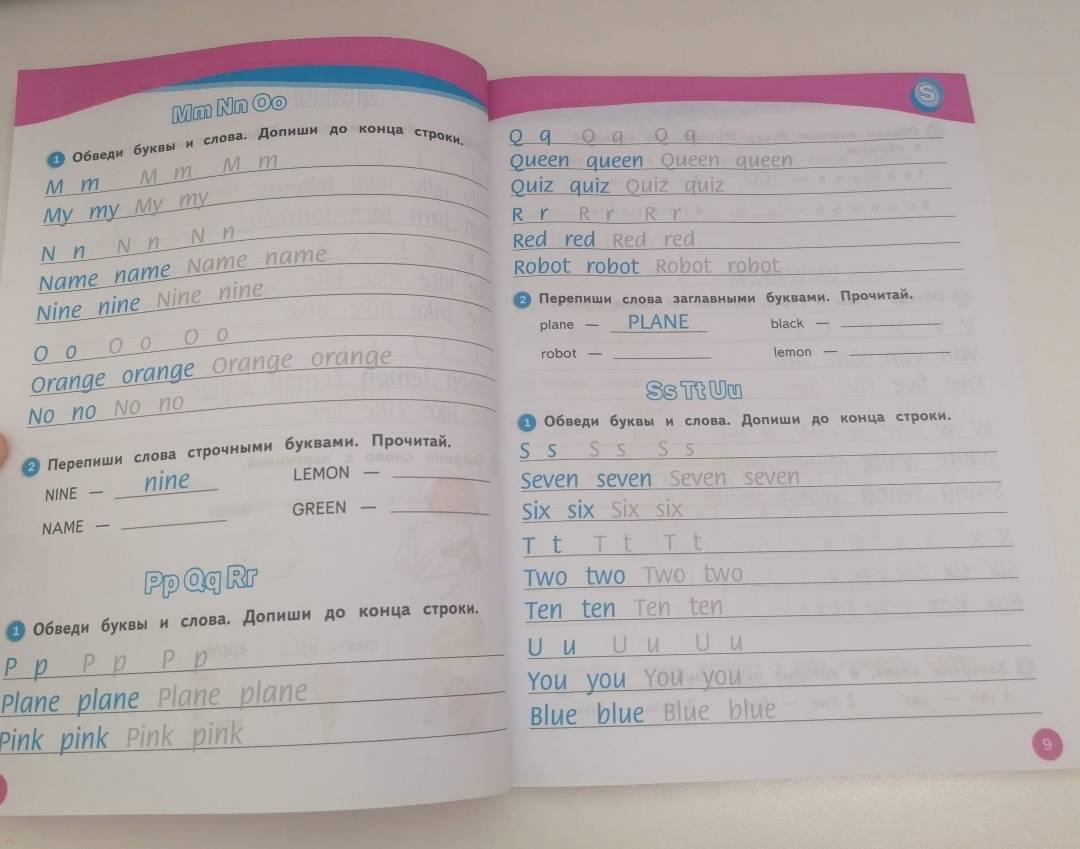 Mm Nn Oo
1 Обведи буквы и слова. Допиши до конца строки.
M m M m M m
My my My my
N n N n N n
Name name Name name
Nine nine Nine nine
O o O o O o
Orange orange Orange orange
No no No no
2 Перепиши слова строчными буквами. Прочитай.
NINE — nine LEMON —
NAME — GREEN —
Pp Qq Rr
1 Обведи буквы и слова. Допиши до конца строки.
P p P p P p
Plane plane Plane plane
Pink pink Pink pink
S
Q q Q q Q q
Queen queen Queen queen
Quiz quiz Quiz quiz
R r R r R r
Red red Red red
Robot robot Robot robot
2 Перепиши слова заглавными буквами. Прочитай.
plane — PLANE black —
robot — lemon —
Ss Tt Uu
1 Обведи буквы и слова. Допиши до конца строки.
S s S s S s
Seven seven Seven seven
Six six Six six
T t T t T t
Two two Two two
Ten ten Ten ten
U u U u U u
You you You you
Blue blue Blue blue
9